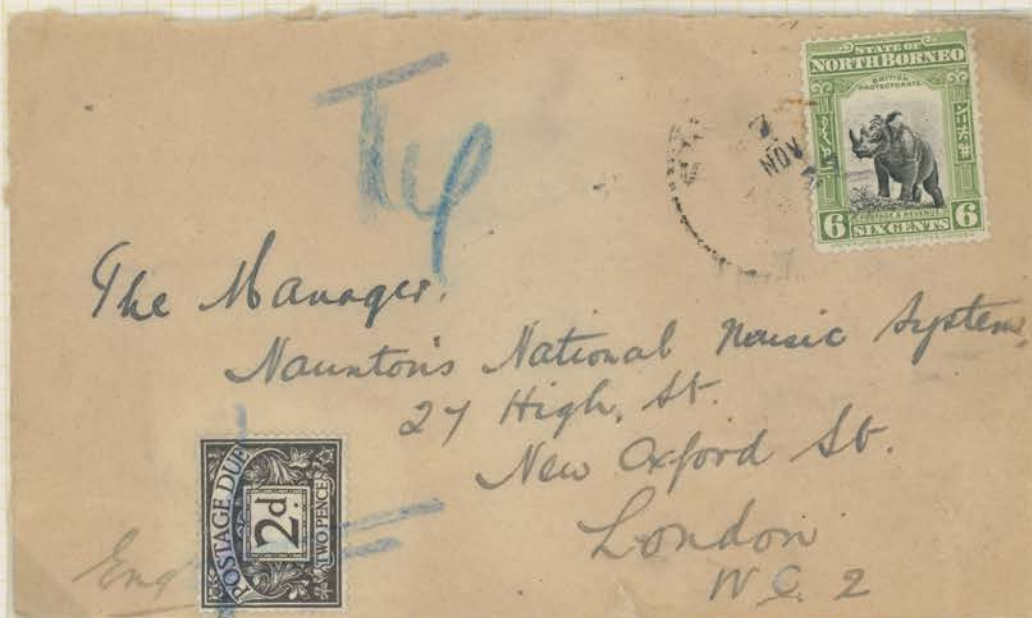 STATE OF
NORTH BORNEO
BRITISH
PROTECTORATE
POSTAGE & REVENUE
6 SIX CENTS 6
NOV
The Manager.
Naunton's National Music System,
27 High, St.
New Oxford St.
London
W.C. 2
Eng
POSTAGE DUE
2d.
TWO PENCE